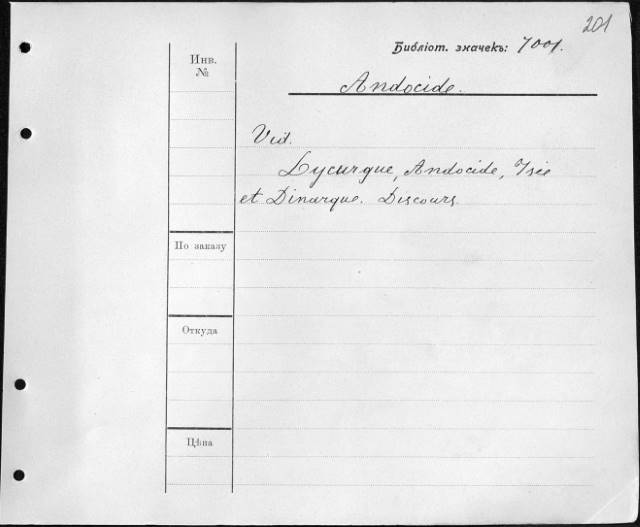 201
Библіот. значекъ: 7001.
Инв.
№
Andocide.
Vid.
Lycurgue, Andocide, Isée
et Dinarque. Discours.
По заказу
Откуда
Цѣна